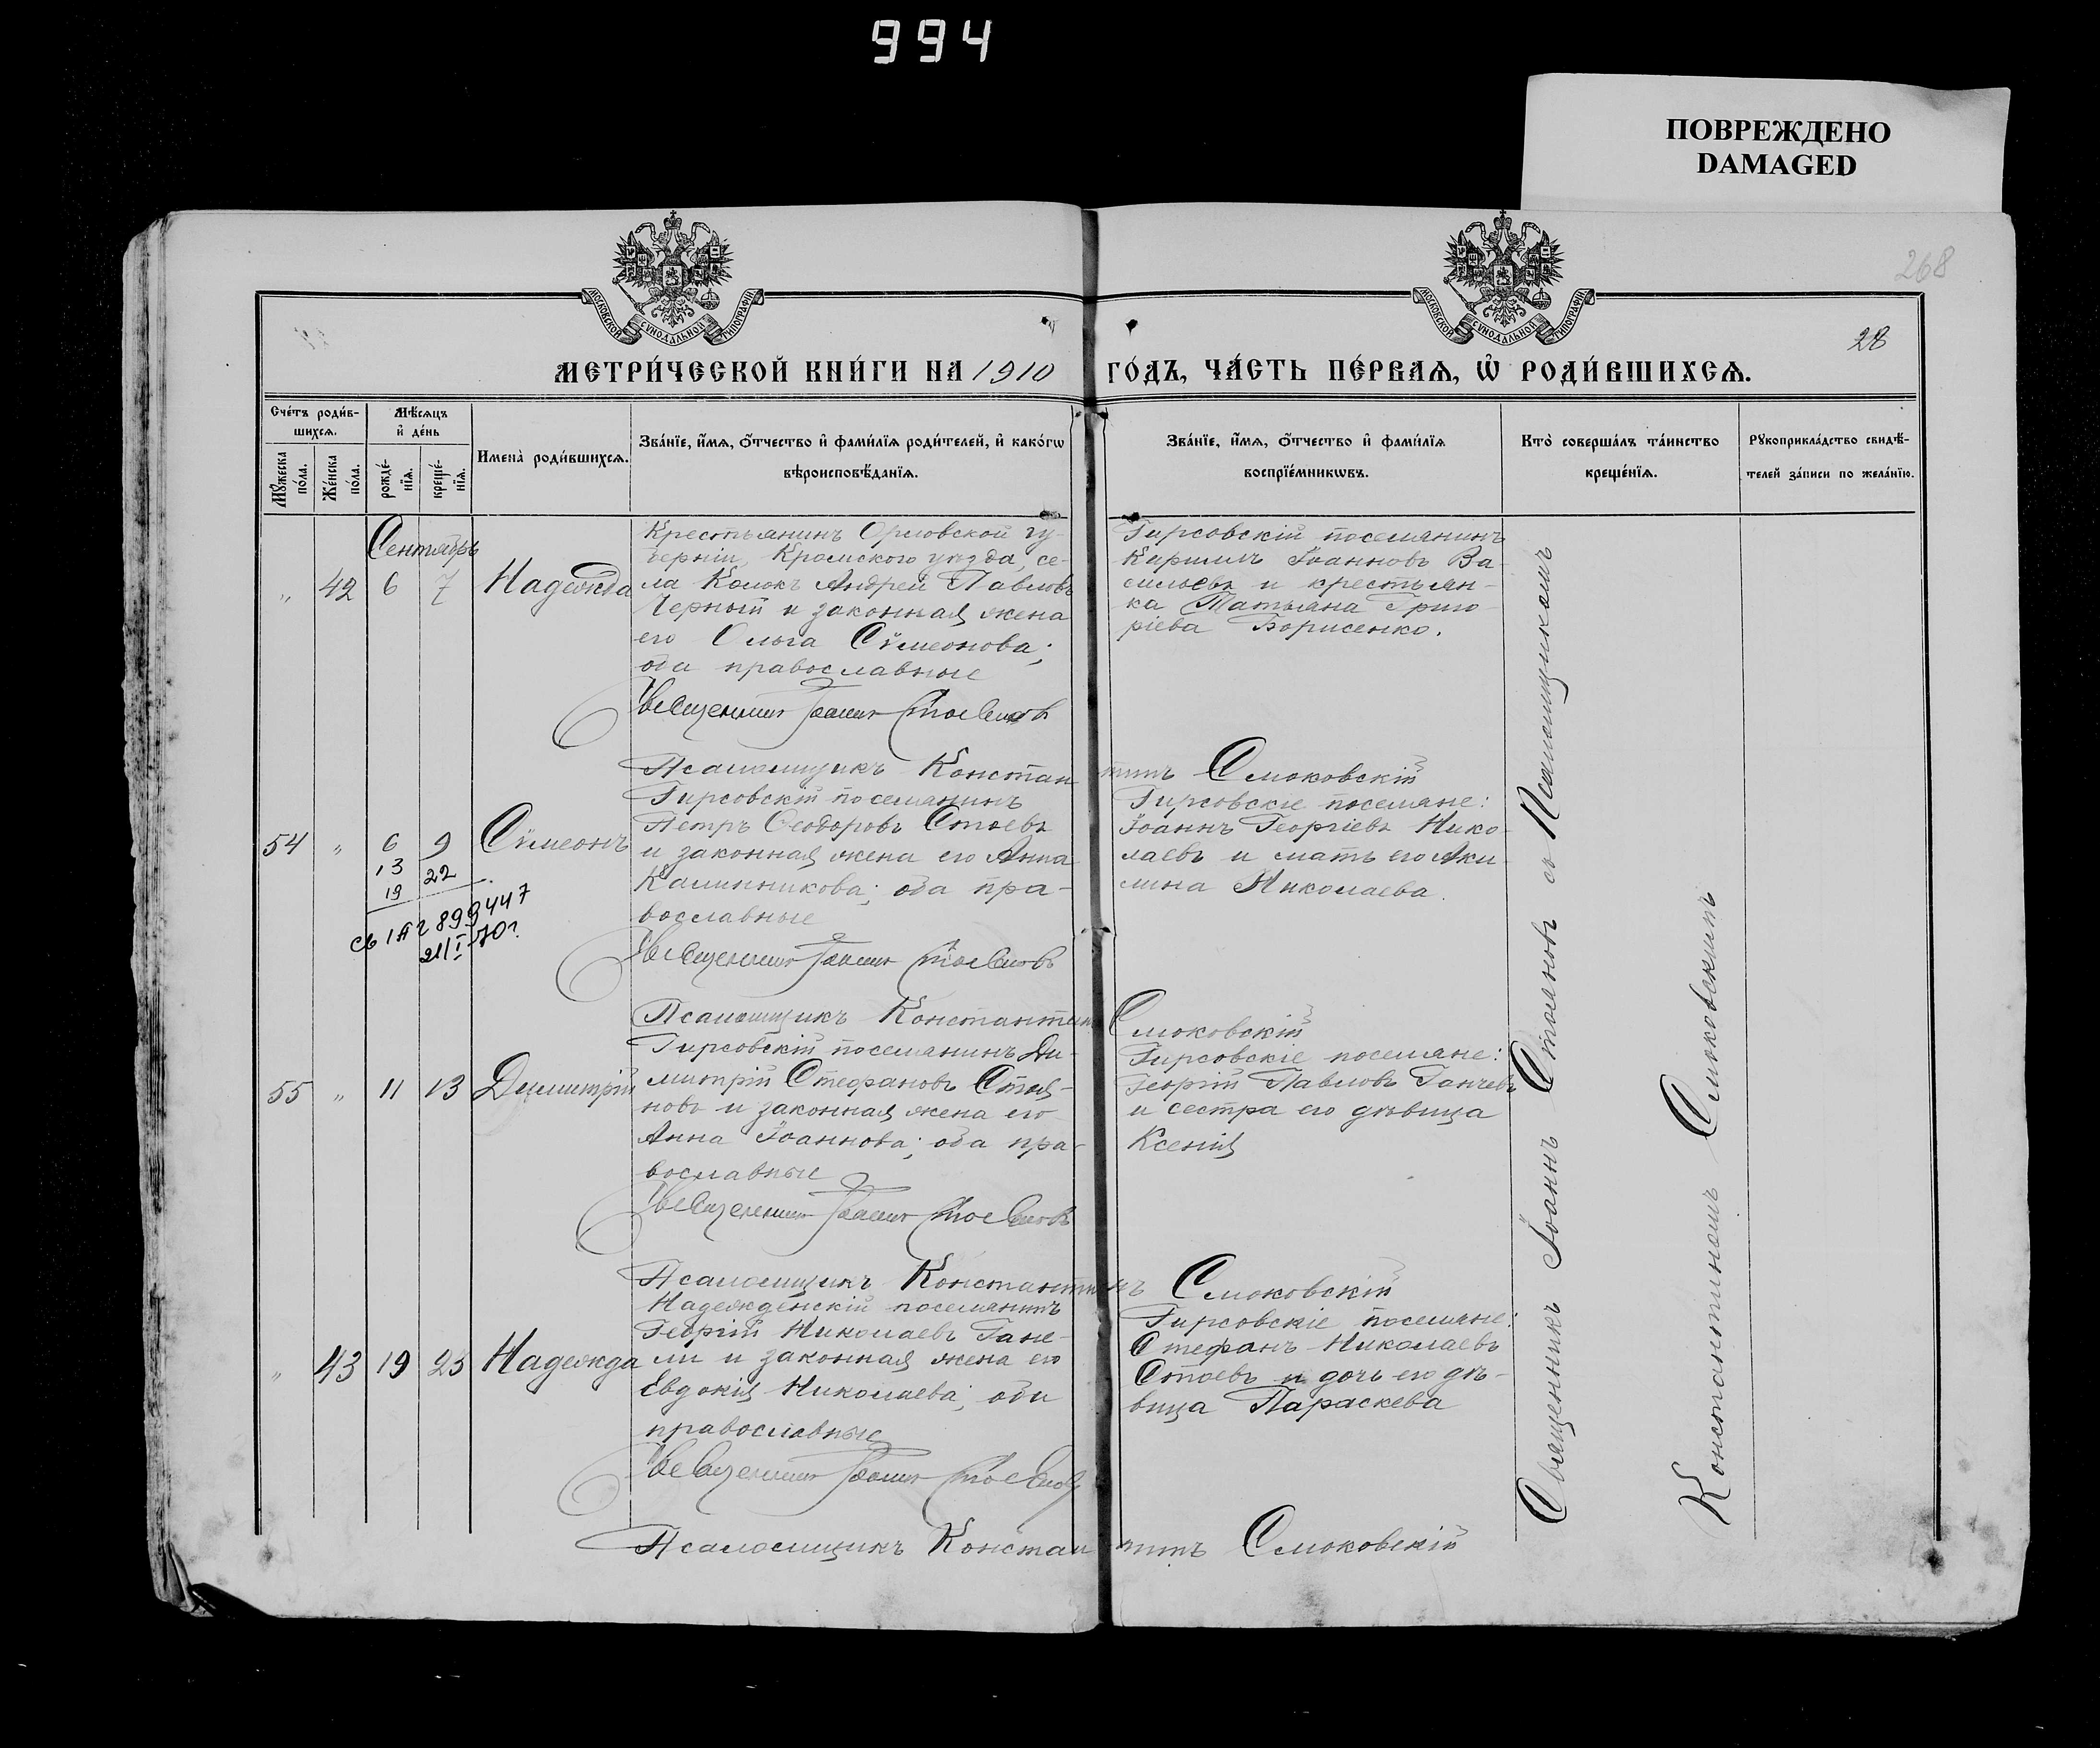 994
ПОВРЕЖДЕНО
DAMAGED
268
28
МОСКОВСКОЙ СѴНОДАЛЬНОЙ ТИПОГРАФІИ
МОСКОВСКОЙ СѴНОДАЛЬНОЙ ТИПОГРАФІИ
МЕТРИ́ЧЕСКОЙ КНИ́ГИ НА 1910 ГО́ДЪ, ЧА́СТЬ ПЕ́РВАѦ, Ѡ҆ РОДИ́ВШИХСѦ.
Сче́тъ роди́в-
шихсѧ.
Мꙋ́жеска
по́ла.
Же́нска
по́ла.
Мѣ́сѧцъ
и҆ де́нь
рожде́-
нїѧ.
креще́-
нїѧ.
Имена̀ роди́вшихсѧ.
Зва́нїе, и҆́мѧ, ѻ҆́тчество и҆ фами́лїѧ роди́телей, и҆ како́гѡ
вѣроисповѣ́данїѧ.
Зва́нїе, и҆́мѧ, ѻ҆́тчество и҆ фами́лїѧ
воспрїе́мникѡвъ.
Кто̀ соверша́лъ та́инство
креще́нїѧ.
Рꙋкоприкла́дство свидѣ́-
телей за́писи по жела́нїю.
Сентябрь
„ 42 6 7 Надежда
Крестьянинъ Орловской гу-
берніи, Кромского уѣзда, се-
ла Колокъ Андрей Павловъ
Черный и законная жена
его Ольга Сѵмеонова;
оба православные
Священникъ Іоаннъ Стояновъ
Гирсовскій поселянинъ
Кириллъ Іоанновъ Ва-
сильевъ и крестьян-
ка Татьяна Григо-
ріева Борисенко.
Псаломщикъ Константинъ Смоковскій
54 „ 6 9 Сѵмеонъ
13 22
19
св IАГ 899447
21/I-70г.
Гирсовскій поселянинъ
Петръ Ѳеодоровъ Стоевъ
и законная жена его Анна
Калинникова; оба пра-
вославные
Священникъ Іоаннъ Стояновъ
Гирсовскіе поселяне:
Іоаннъ Георгіевъ Нико-
лаевъ и мать его Аки-
лина Николаева.
Псаломщикъ Константинъ Смоковскій
55 „ 11 13 Димитрій
Гирсовскій поселянинъ Ди-
митрій Стефановъ Стоя-
новъ и законная жена его
Анна Іоаннова; оба пра-
вославные
Священникъ Іоаннъ Стояновъ
Гирсовскіе поселяне:
Георгій Павловъ Ганчевъ
и сестра его дѣвица
Ксенія
Псаломщикъ Константинъ Смоковскій
„ 43 19 23 Надежда
Надежденскій поселянинъ
Георгій Николаевъ Гане-
ли и законная жена его
Евдокія Николаева; оба
православные
Священникъ Іоаннъ Стояновъ
Гирсовскіе поселяне:
Стефанъ Николаевъ
Стоевъ и дочь его дѣ-
вица Параскева
Псаломщикъ Константинъ Смоковскій
Священникъ Іоаннъ Стояновъ съ Псаломщикомъ
Константиномъ Смоковскимъ